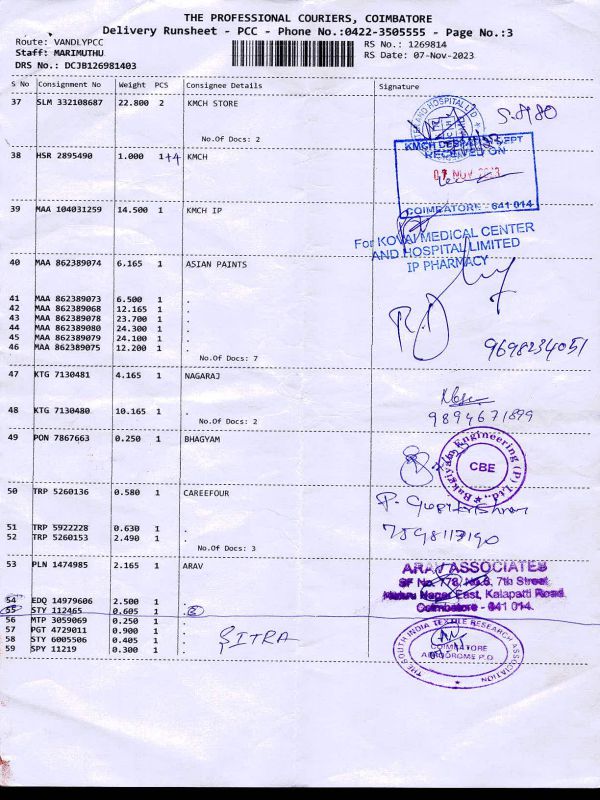 THE PROFESSIONAL COURIERS, COIMBATORE
Delivery Runsheet - PCC - Phone No.:0422-3505555 - Page No.:3
Route: VANDLYPCC RS No.: 1269814
Staff: MARIMUTHU RS Date: 07-Nov-2023
DRS No.: DCJB126981403
S No Consignment No Weight PCS Consignee Details Signature
37 SLM 332108687 22.800 2 KMCH STORE
No.Of Docs: 2
KMCH DESPATCH DEPT
RECEIVED ON
38 HSR 2895490 1.000 1+4 KMCH
07 NOV 2023
COIMBATORE - 641 014
39 MAA 104031259 14.500 1 KMCH IP
For KOVAI MEDICAL CENTER
AND HOSPITAL LIMITED
IP PHARMACY
40 MAA 862389074 6.165 1 ASIAN PAINTS
41 MAA 862389073 6.500 1 .
42 MAA 862389068 12.165 1 .
43 MAA 862389078 23.700 1 .
44 MAA 862389080 24.300 1 .
45 MAA 862389079 24.100 1 .
46 MAA 862389075 12.200 1 .
9698234051
No.Of Docs: 7
47 KTG 7130481 4.165 1 NAGARAJ
48 KTG 7130480 10.165 1 .
9894671899
No.Of Docs: 2
49 PON 7867663 0.250 1 BHAGYAM
Bakgiyam Engineering (P) Ltd.,
CBE
50 TRP 5260136 0.580 1 CAREEFOUR
P. Gopi krishnan
51 TRP 5922228 0.630 1 .
52 TRP 5260153 2.490 1 .
7598117190
No.Of Docs: 3
53 PLN 1474985 2.165 1 ARAV
ARAV ASSOCIATES
SF No. 778, No.6, 7th Street
Nehru Nagar East, Kalapatti Road
Coimbatore - 641 014.
54 EDQ 14979606 2.500 1 .
55 STY 112465 0.605 1
56 MTP 3059069 0.250 1 .
57 PGT 4729011 0.900 1 .
58 STY 6005506 0.405 1 .
59 SPY 11219 0.300 1 .
SITRA
THE SOUTH INDIA TEXTILE RESEARCH ASSOCIATION
COIMBATORE
AERODROME P.O